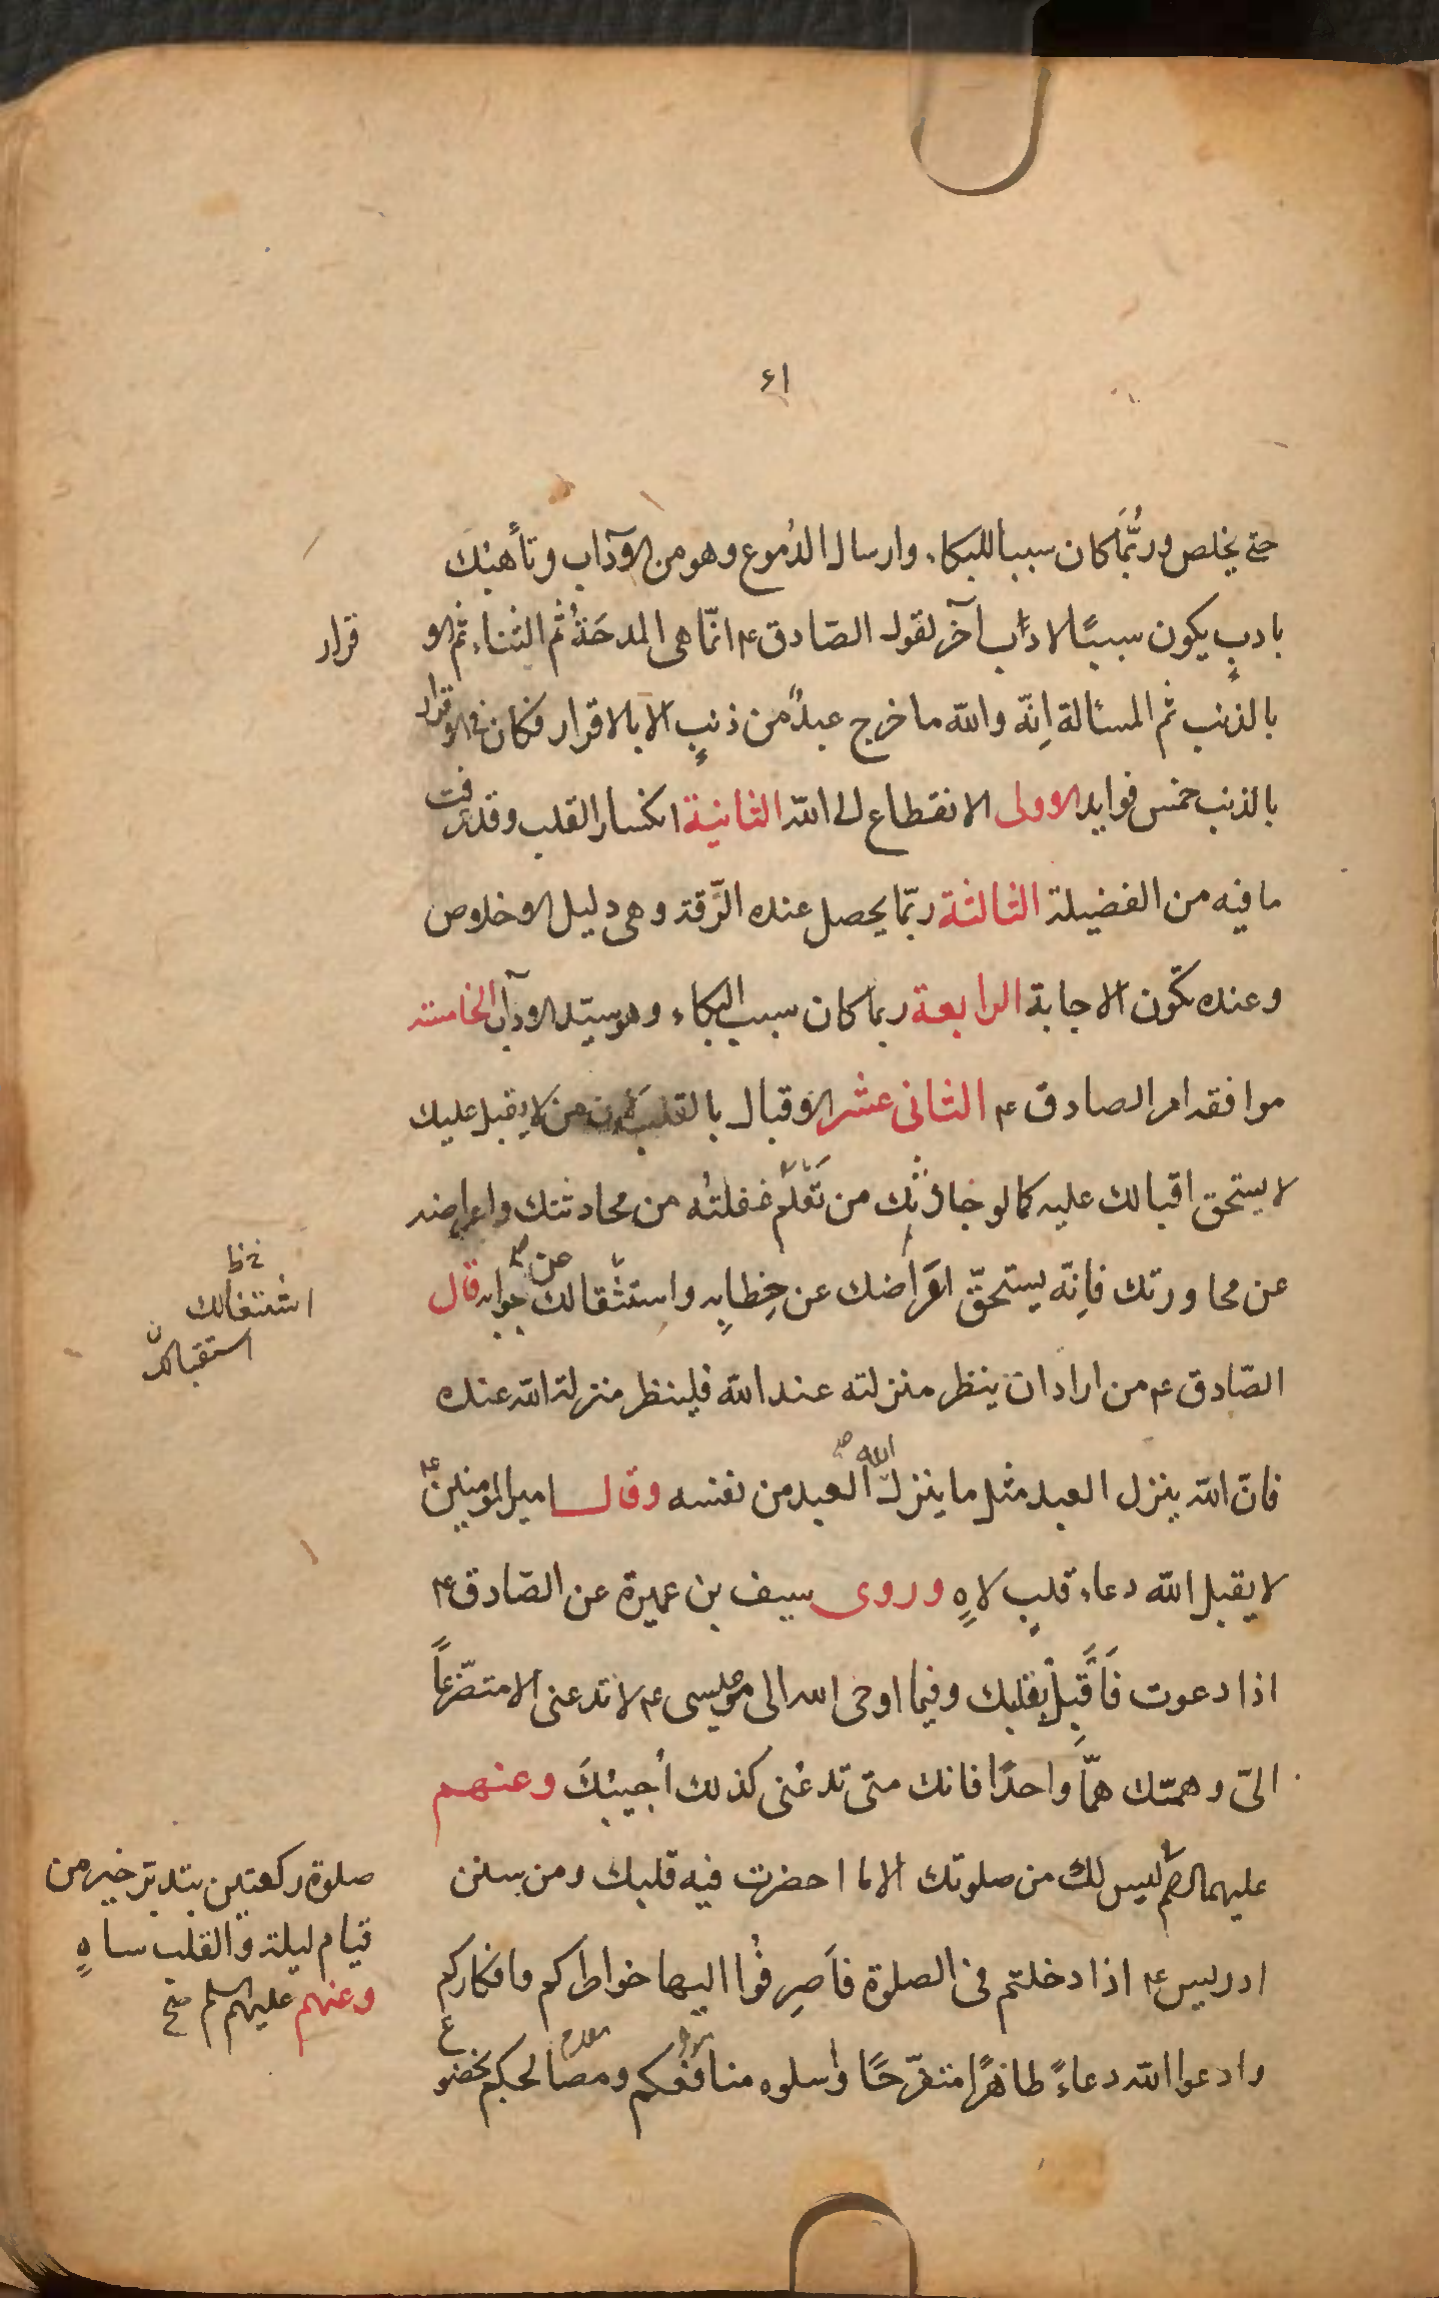 ٦١
حتى يخلص وربُّمَا كان سببا للبكاء وارسال الدُموع وهو من الآداب وناهيْك
بادبٍ يكون سببًا لادابٍ آخر لقول الصّادق ع انّما هى المدحَةُ ثُم الثناء ثم الا
قرار
بالذنب ثم المسئالة اِنّه والله ما خرج عبدٌ من ذنبٍ الا بالاقرار فكان فى الاقرار
بالذنب خمس فوايد الاولى الانقطاع الى الله الثانية انكسار القلب وقد عرفت
ما فيه من الفضيلة الثالثة ربّما يحصل عنده الرّقة وهى دليل الاخلاص
وعنده تكون الاجابة الرابعة ربما كان سبب البكاء وهو سيّد الاداب الخامسة
موافقة امر الصادق ع الثانى عشر الاقبال بالقلب لان من لا يقبل عليك
لا يستحق اقبالك عليه كما لو حادثك من تَعْلَم غفلتُه من محادثتك واعراضه
عن محاورتك فاِنّه يستحقّ اعراضك عن خِطابِه واستثقالك عن جوابه قال
خ ظ
اشتغالك
استقبالك ن
الصّادق ع من اراد ان ينظر منزلته عند الله فلينظر منزلة الله عنده
فانّ الله ينزل العبد مثل ما ينزل الله العبد من نفسه وقال امير المومنين ع
لا يقبل الله دعاء قلبٍ لاهٍ وروى سيف بن عميرة عن الصّادق ع
اذا دعوت فَاَقْبِلْ بقلبك وفيما اوحى الله الى عيسى ع لا تدعنى الا متضرّعاً
الىّ وهمّك همّاً واحدًا فانك متى تدعُنى كذلك اُجيبْكَ وعنهم
عليهم السلم ليس لك من صلوتك الا ما احضرت فيه قلبك ومن سنن
صلوة ركعتين بتدبّر خير من
قيام ليلة والقلب ساهٍ
وعنهم عليهم السلم صح
ادريس ع اذا دخلتم فى الصلوة فاَصرِفُوا اليها خواطركم وافكاركم
وادعوا الله دعاءً طاهرًا متفرّحًا واسلوه منافعكم ومصالحكم بخضوع